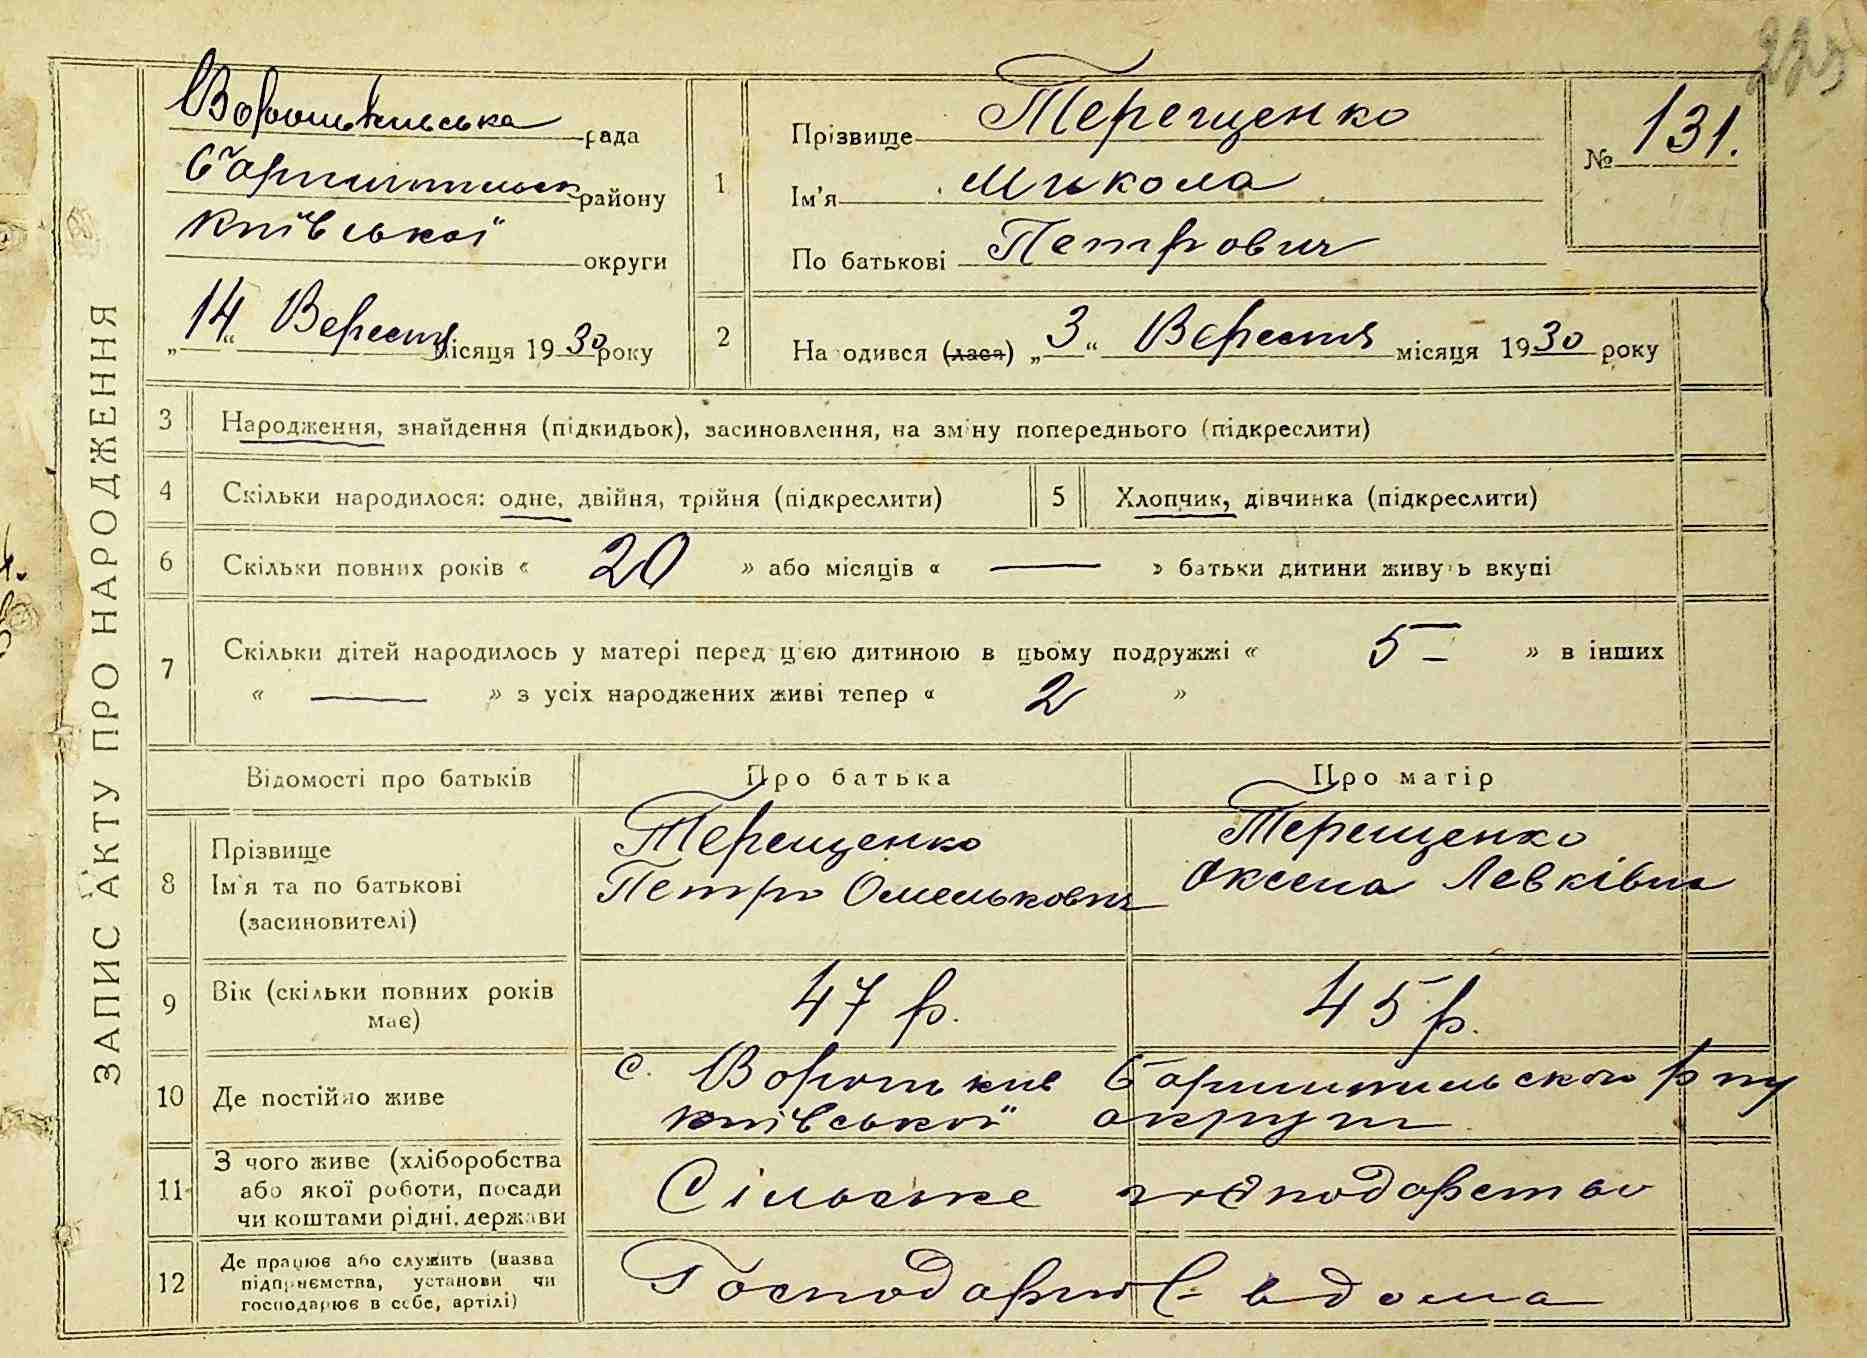 225
ЗАПИС АКТУ ПРО НАРОДЖЕННЯ
Вороньківська рада
Бориспільськ району
Київської округи
„14“ Вересня місяця 1930 року
1
Прізвище Терещенко
Ім'я Микола
По батькові Петрович
№ 131.
2
На одився (лася) „3“ Вересня місяця 1930 року
3 Народження, знайдення (підкидьок), засиновлення, на зміну попереднього (підкреслити)
4 Скільки народилося: одне, двійня, трійня (підкреслити)
5 Хлопчик, дівчинка (підкреслити)
6 Скільки повних років « 20 » або місяців « — » батьки дитини живуть вкупі
7 Скільки дітей народилось у матері перед цією дитиною в цьому подружжі « 5 – » в інших
« — » з усіх народжених живі тепер « 2 »
Відомості про батьків Про батька Про матір
8 Прізвище
Ім'я та по батькові
(засиновителі)
Терещенко
Петро Омелькович
Терещенко
Оксена Левківна
9 Вік (скільки повних років
має)
47 р.
45 р.
10 Де постійно живе
с. Вороньків Бориспільского р ну
Київської округи
11 З чого живе (хліборобства
або якої роботи, посади
чи коштами рідні, держави
Сільське господарство
12 Де працює або служить (назва
підприємства, установи чи
господарює в себе, артілі)
Господарює вдома